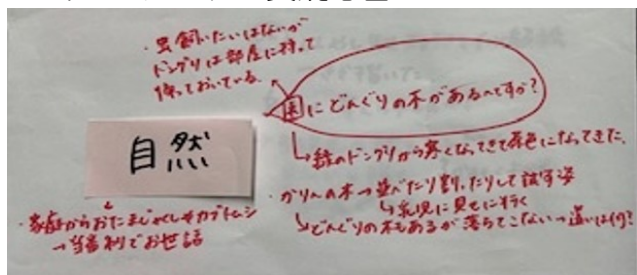 ・虫飼いたいはないが
ドングリは部屋に持って
帰っておいている。
園にどんぐりの木があるんですか?
↳緑のドングリから寒くなってきて茶色になってきた。
自然
・かりんの木→並べたり割ったりして試す姿
↳乳児に見せに行く
↳どんぐりの木もあるが落ちてこない→違いは何?
・家庭からおたまじゃくしやカブトムシ
→当番制でお世話